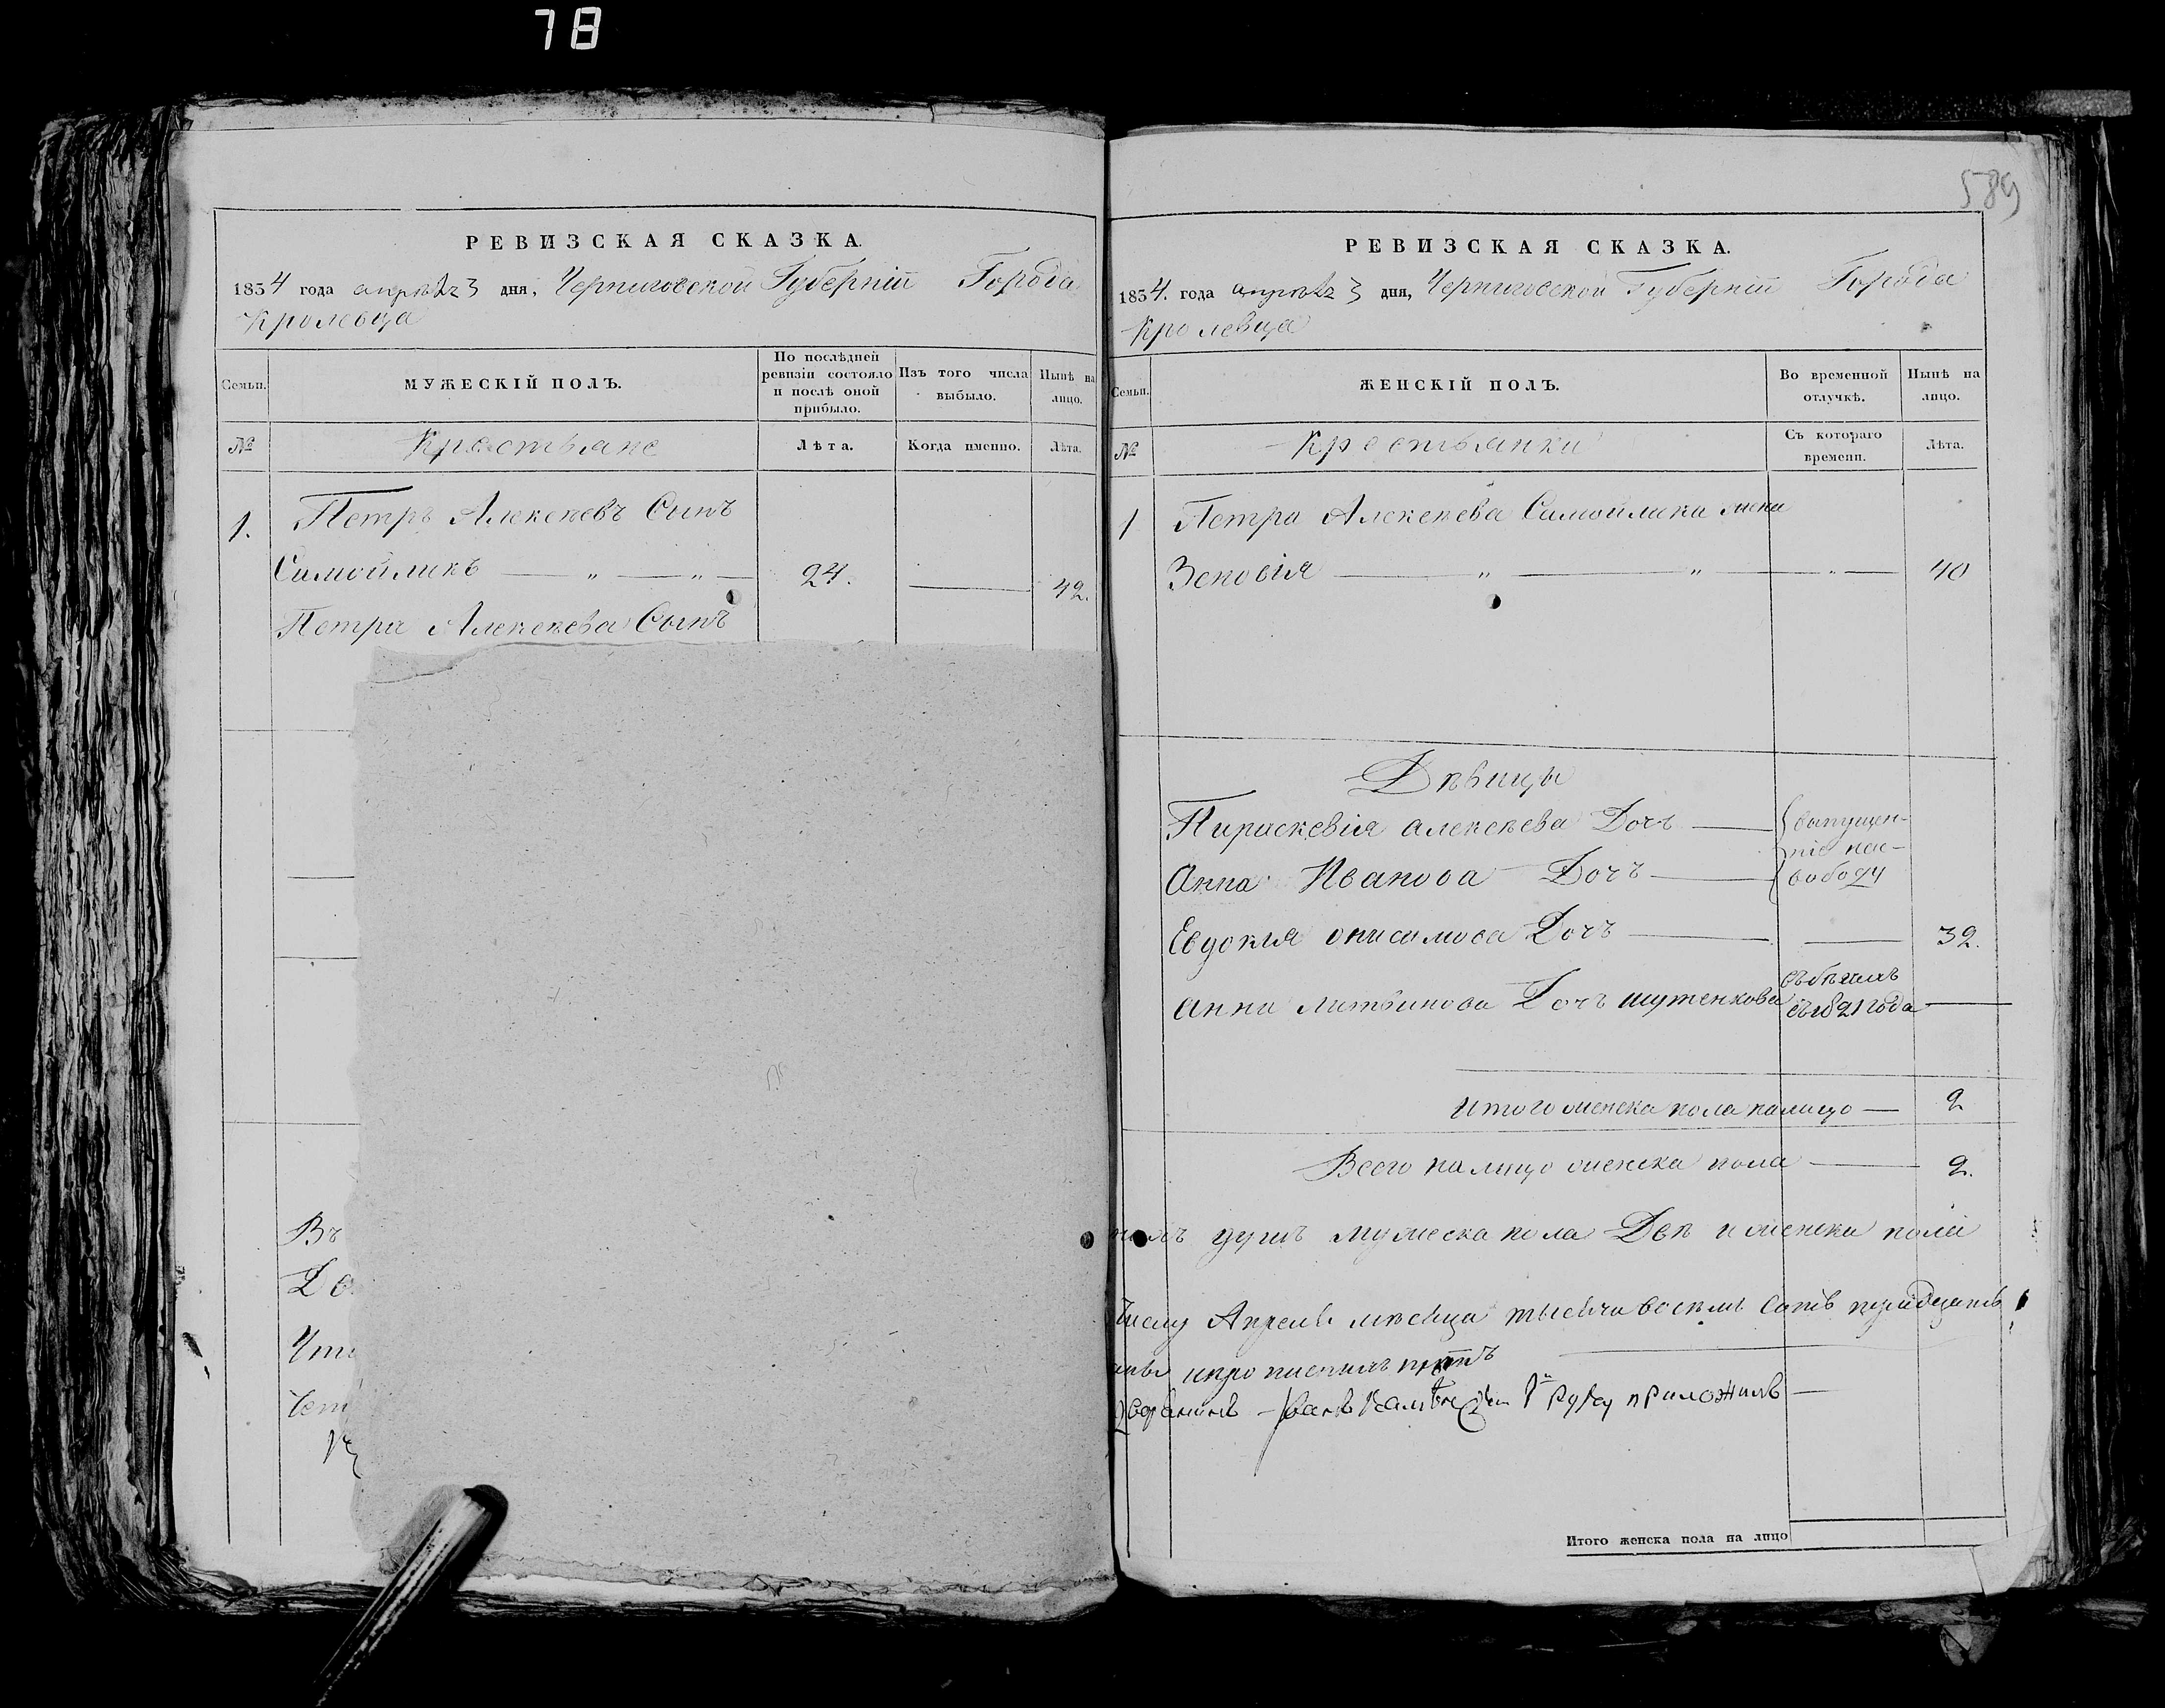 78
РЕВИЗСКАЯ СКАЗКА.
1854 года апрѣля 3 дня, Черниговской Губерніи Города
Кролевца
Семьи.
МУЖЕСКІЙ ПОЛЪ.
По послѣдней
ревизіи состояло
и послѣ оной
прибыло.
Изъ того числа
выбыло.
Нынѣ на
лицо.
№
Крестьяне
Лѣта.
Когда именно.
Лѣта.
1. Петръ Алексѣевъ Сынъ
Самойликъ — „ — „ — 24. — 42.
Петра Алексѣева Сынъ
Въ
Что
589
РЕВИЗСКАЯ СКАЗКА.
1854. года апрѣля 3 дня, Черниговской Губерніи Города
Кролевца
Семьи.
ЖЕНСКІЙ ПОЛЪ.
Во временной
отлучкѣ.
Нынѣ на
лицо.
№
Крестьянки
Съ котораго
времени.
Лѣта.
1 Петра Алексѣева Самойлика жена
Зеновія — „ — „ — „ — 40
Дѣвицы
Параскевія Алексѣева Дочъ — выпущен-
ніе нас-
Анна Иванова Дочъ — вободу
Евдокия онисимова Дочъ — — 32.
Анна Литвинова Дочъ шутенкова
въбѣгахъ
съ 1821 года —
Итого женска пола налицо — 2
Всего налицо женска пола — 2.
душъ мужеска пола Двѣ и женска пола
числу Апреля мѣсяца тысяча восемь сотъ пятдесятъ
руку приложилъ —
Итого женска пола на лицо